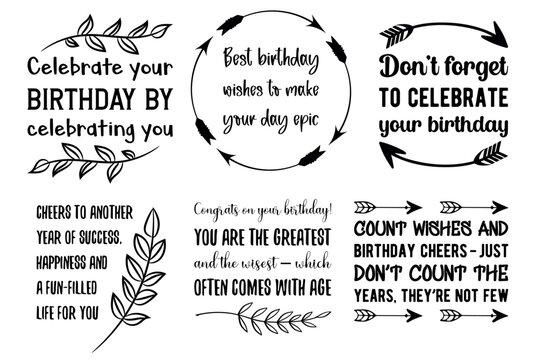 Celebrate your
BIRTHDAY BY
celebrating you
Best birthday
wishes to make
your day epic
Don't forget
TO CELEBRATE
your birthday
CHEERS TO ANOTHER
YEAR OF SUCCESS,
HAPPINESS AND
A FUN-FILLED
LIFE FOR YOU
Congrats on your birthday!
YOU ARE THE GREATEST
and the wisest – which
OFTEN COMES WITH AGE
COUNT WISHES AND
BIRTHDAY CHEERS – JUST
DON'T COUNT THE
YEARS, THEY'RE NOT FEW